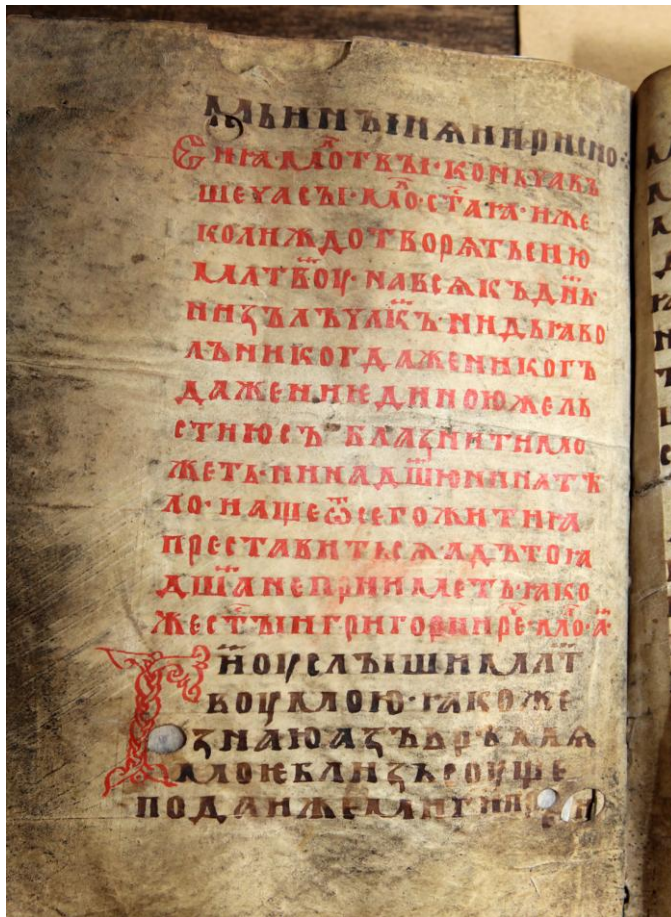 мь и нъін ѧ и при сно ⁘
Є ниꙗ · мл҃отвъі · коньчавъ
ше часъі · мл҃о · ст҃аꙗ · иже
колижⷣо творѧть сию
млт҃воу · на всѧкъ дн҃ь
ни зълъ чл҃къ · ни дьꙗво
лъ никогдаже никогъ
даже ни иединоюже ль
стию съблазнити мо
жеть · ни на дш҃ю ни на тѣ
ло · нашє ѿ сего житиꙗ
преставитьсѧ · адъ тоꙗ
дш҃а не прииметь · ꙗко
же ст҃ъіи григории ре҃ · мл҃о · а҃
Г҃и оуслъіши млт҃
воу мою · ꙗко же
знаю азъ врѣмѧ
мое близь ѥ оуже
подаи же ми